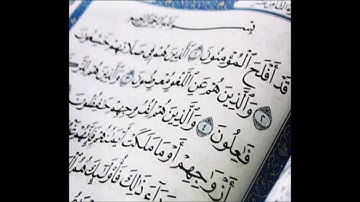 بِسْمِ اللَّهِ الرَّحْمَٰنِ الرَّحِيمِ
قَدْ أَفْلَحَ الْمُؤْمِنُونَ ١ الَّذِينَ هُمْ فِي صَلَاتِهِمْ خَاشِعُونَ
٢ وَالَّذِينَ هُمْ عَنِ اللَّغْوِ مُعْرِضُونَ ٣ وَالَّذِينَ هُمْ
فَاعِلُونَ ٤ وَالَّذِينَ هُمْ لِفُرُوجِهِمْ حَافِظُونَ
أَزْوَاجِهِمْ أَوْ مَا مَلَكَتْ أَيْمَانُهُمْ فَإِنَّهُمْ
وَرَاءَ ذَٰلِكَ فَأُولَٰئِكَ هُمُ